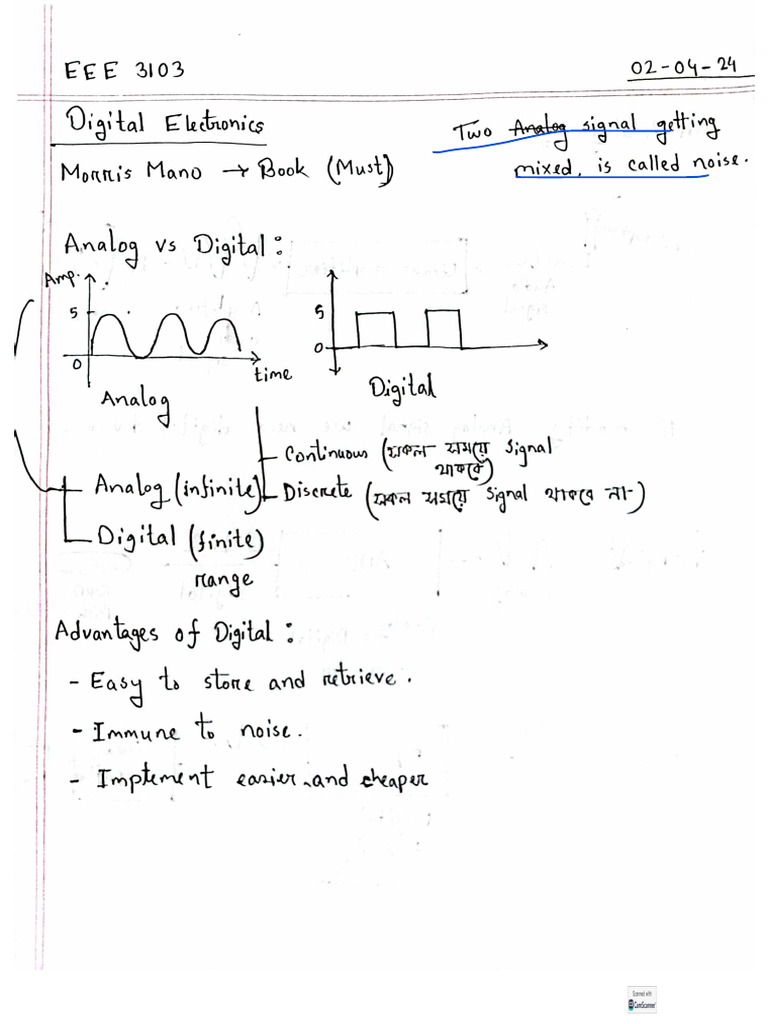 EEE 3103
02-04-24
Digital Electronics
Two Analog signal getting
mixed, is called noise.
Morris Mano → Book (Must)
Analog vs Digital:
Amp.
5
0
time
Analog
5
0
Digital
Continuous (সকল সময়ে signal
থাকবে)
Analog (infinite)
Discrete (সকল সময়ে signal থাকবে না)
Digital (finite)
range
Advantages of Digital:
- Easy to store and retrieve.
- Immune to noise.
- Implement easier and cheaper
Scanned with
CamScanner